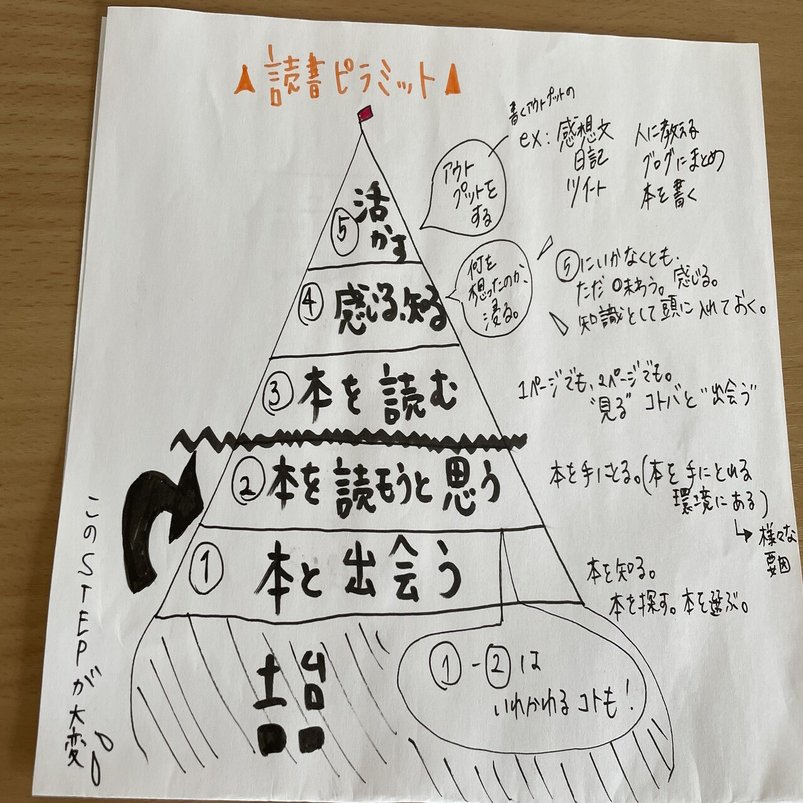 ▲読書ピラミット▲
書くアウトプットの
ex: 感想文 人に教える
日記 ブログにまとめ
ツイート 本を書く
アウト
プットを
する
⑤ 活
かす
④ 感じる、知る
何を
想ったのか、
浸る。
⑤にいかなくとも、
ただ味わう。感じる。
知識として頭に入れておく。
③ 本を読む
1ページでも、2ページでも。
"見る" コトバと"出会う"
② 本を読もうと思う
本を手にとる。(本を手にとれる
環境にある)
↳ 様々な
要因
① 本と出会う
本を知る。
本を探す。本を選ぶ。
このSTEPが大変!!
土台
①-②は
いれかわるコトも!